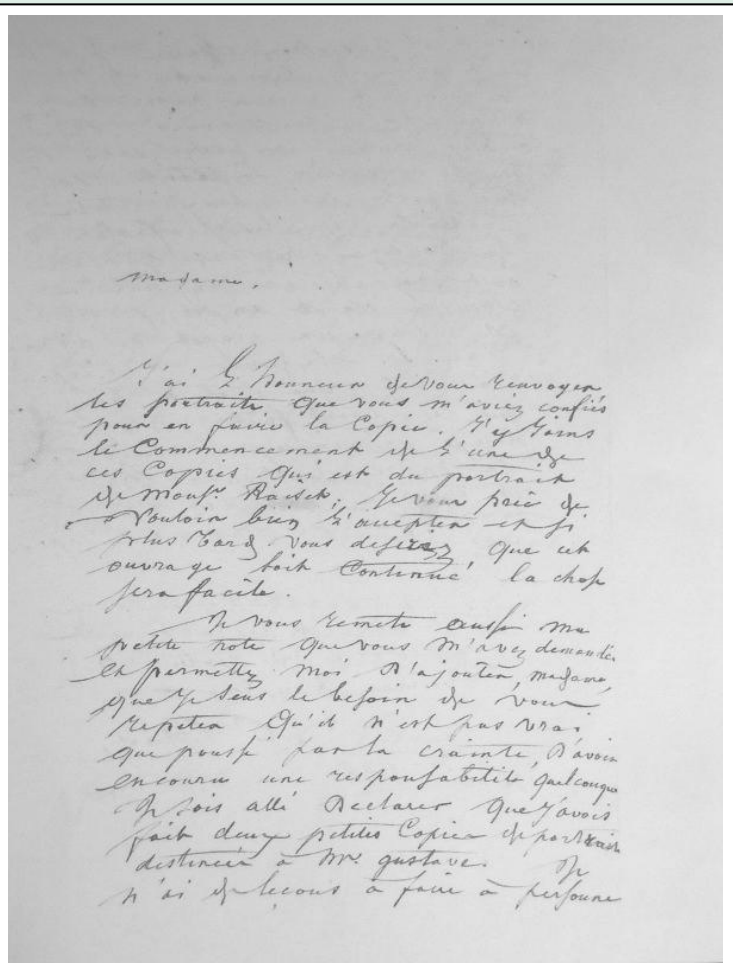 Madame,
J'ai L'honneur de vous renvoyer
les portraits que vous m'aviez confiés
pour en faire la Copie. J'y joins
le Commencement de L'une de
ces Copies qui est du portrait
de Monsr. Je vous prie de
Vouloir bien L'accepter et si
plus tard vous desirez que cet
ouvrage soit Continué la chose
sera facile.
Je vous remets aussi ma
petite note que vous m'avez demandée
et permettez moi D'ajouter, madame,
que je sens le besoin de vous
repeter Qu'il n'est pas vrai
que poussé par la crainte D'avoir
encouru une responsabilité quelconque
Je sois allé Declarer que j'avois
fait deux petites Copies de portrait
destinées à Mr. gustave. Je
n'ai de leçons à faire à personne